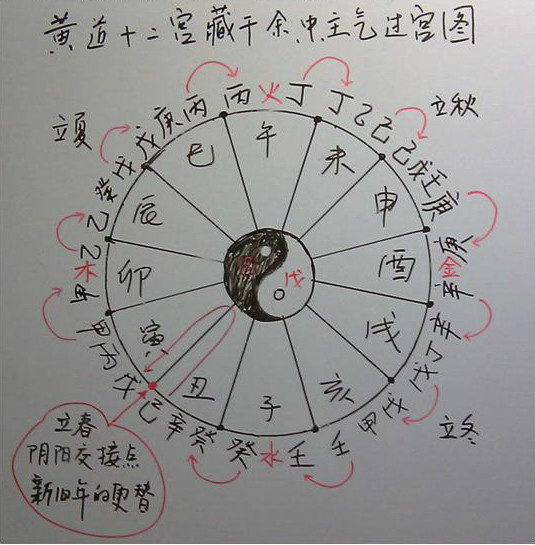 黄道十二宫藏干余中主气过宫图
立夏
立秋
立冬
戊丙甲
甲木乙
乙癸戊
戊庚丙
丙火丁
丁乙己
己戊壬庚
庚金辛
辛丁戊
戊甲壬
壬水癸
癸辛己
寅
卯
辰
巳
午
未
申
酉
戌
亥
子
丑
己
戊
立春
阴阳交接点
新旧年的更替